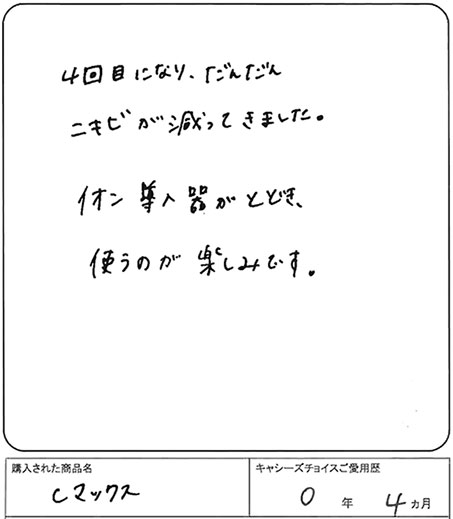 4回目になり、だんだん
ニキビが減ってきました。
イオン導入器がとどき、
使うのが楽しみです。
購入された商品名
Cマックス
キャシーズチョイスご愛用歴
0年4カ月